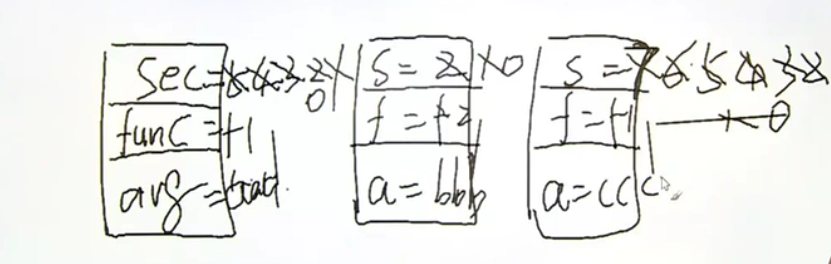 sec=5 4 3 2 1 0
func=f1
arg=aaa
s=2 1 0
f=f2
a=bbb
s=7 6 5 4 3 2 1 0
f=f1
a=ccc